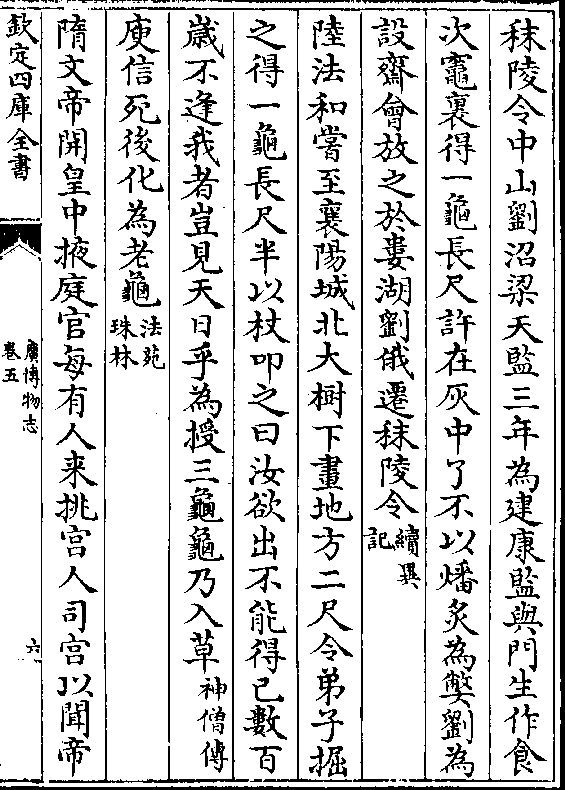 秣陵令中山劉沼梁天監三年為建康監與門生作食
次竈裏得一龜長尺許在灰中了不以燔炙為弊劉為
設齋會放之於婁湖劉俄遷秣陵令續異記
陸法和嘗至襄陽城北大樹下畫地方二尺令弟子掘
之得一龜長尺半以杖叩之曰汝欲出不能得已數百
歲不逢我者豈見天日乎為授三龜龜乃入草神僧傳
庾信死後化為老龜法苑珠林
隋文帝開皇中掖庭官每有人来挑宫人司宫以聞帝
欽定四庫全書
廣博物志
卷五
六